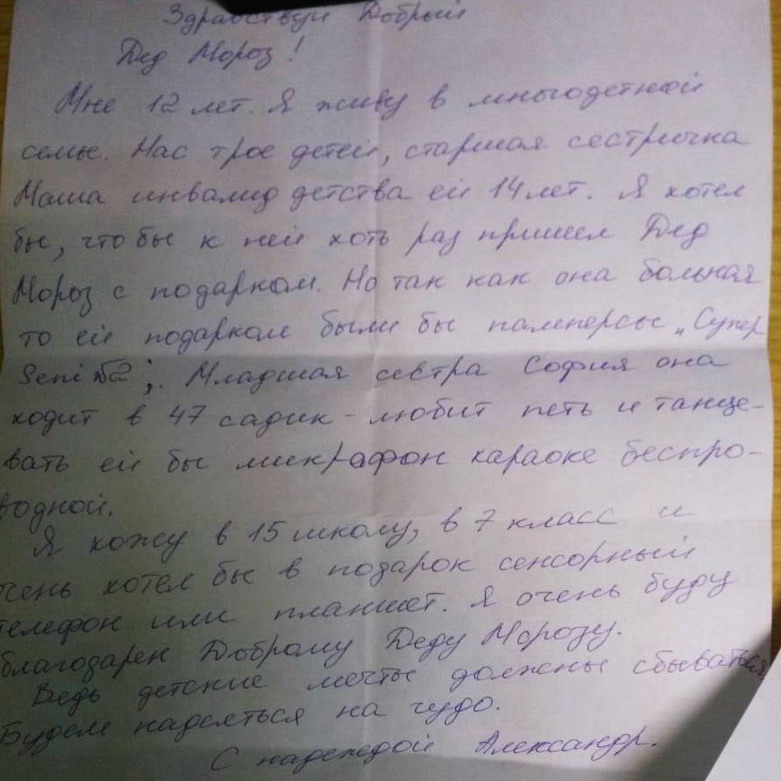 Здравствуй Добрый
Дед Мороз!
Мне 12 лет. Я живу в многодетной
семье. Нас трое детей, старшая сестричка
Маша инвалид детства ей 14 лет. Я хотел
бы, чтобы к ней хоть раз пришел Дед
Мороз с подарком. Но так как она больная
то ей подарком были бы памперсы „Супер
Seni №2". Младшая сестра София она
ходит в 47 садик - любит петь и танце-
вать ей бы микрафон караоке беспро-
водной.
Я хожу в 15 школу, в 7 класс и
очень хотел бы в подарок сенсорный
телефон или планшет. Я очень буду
благодарен Доброму Деду Морозу.
Ведь детские мечты должны сбываться
Будем надеяться на чудо.
С надеждой Александр.